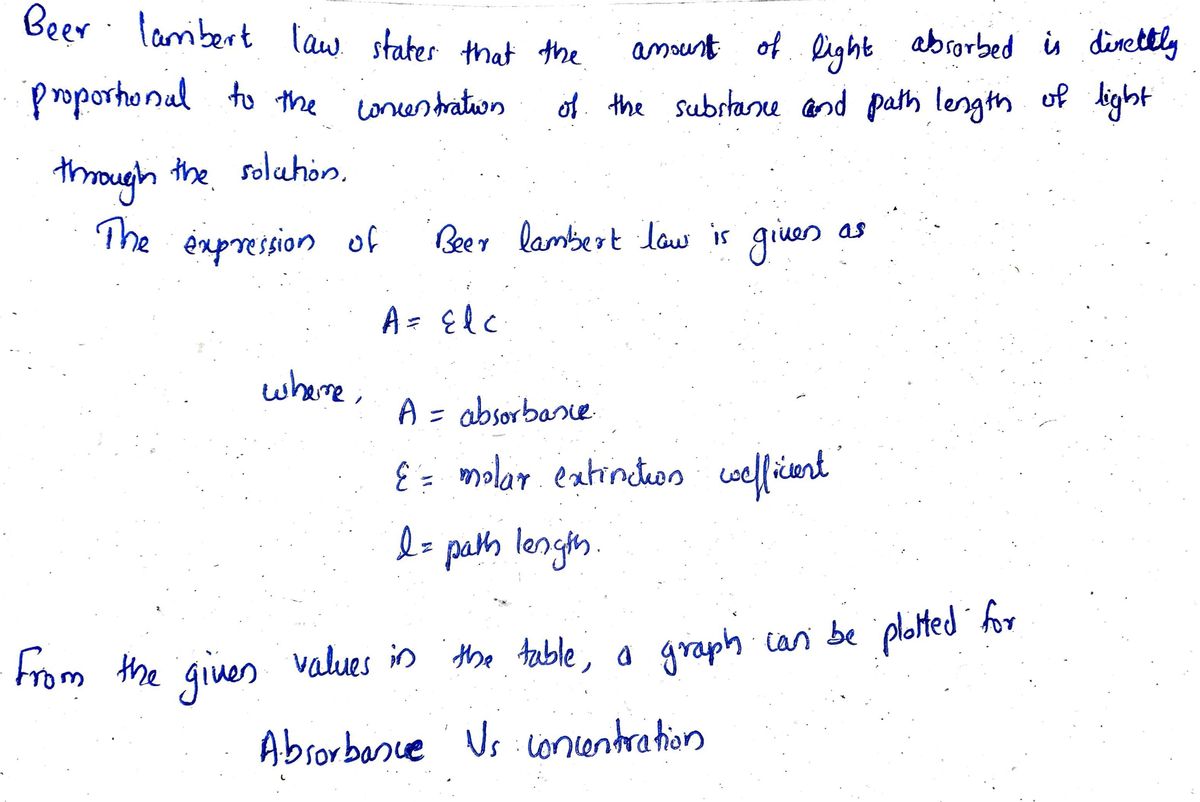 Beer lambert law states that the amount of light absorbed is directly
proportional to the concentration of the substance and path length of light
through the solution.
The expression of Beer lambert law is given as
A = εlc
where,
A = absorbance.
ε = molar extinction coefficient
l = path length.
From the given values in the table, a graph can be plotted for
Absorbance Vs concentration